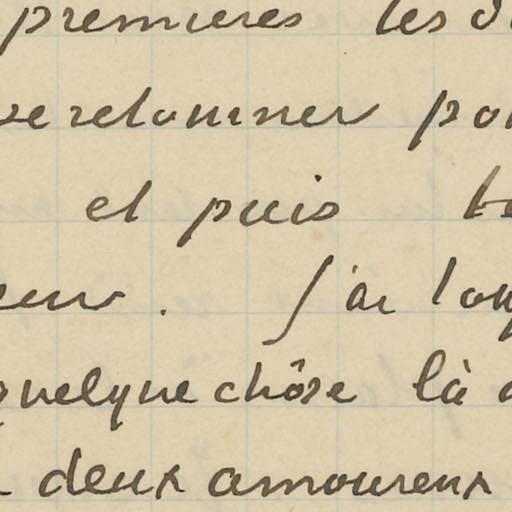 premieres les
se retourner
et puis
. J'ai
quelque chôse là
deux amoureux